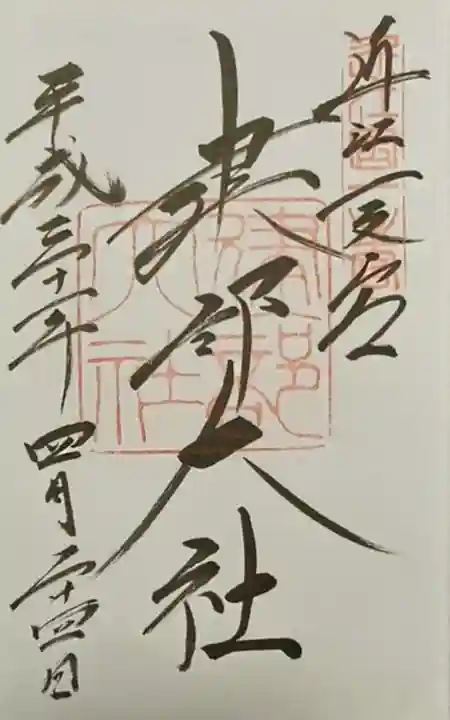 近江一之宮
建部大社
平成三十一年四月二十四日
建部
大社